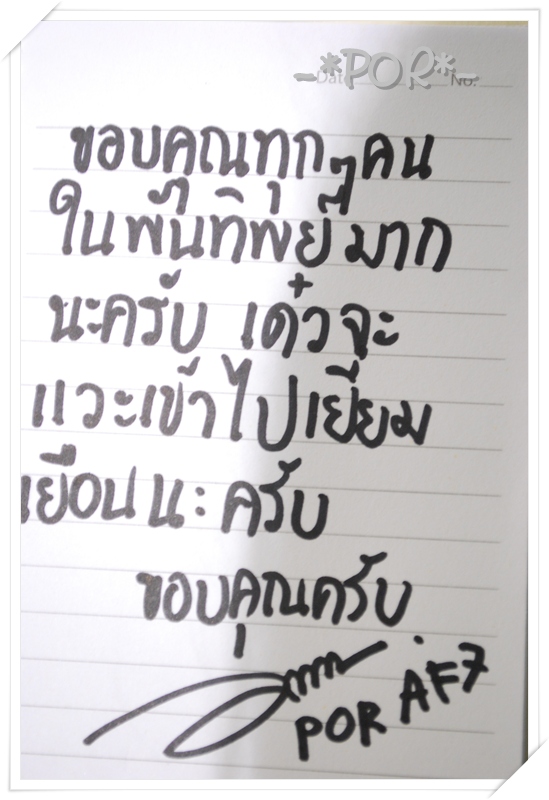 –*POR*–
Date No.
ขอบคุณทุกๆคน
ในพันทิพย์มาก
นะครับ เด๋วจะ
แวะเข้าไปเยี่ยม
เยือนนะครับ
ขอบคุณครับ
POR AF7